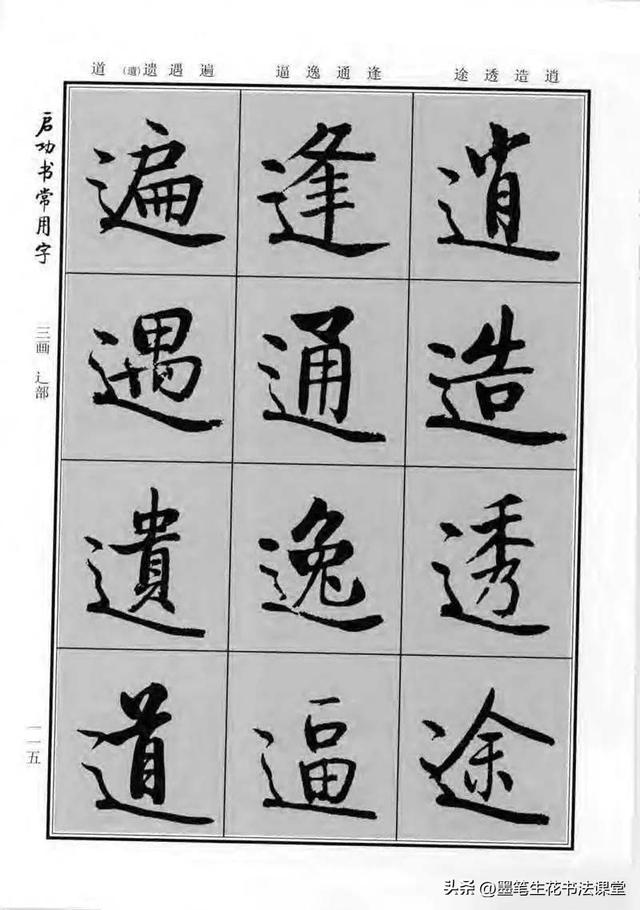 逍造透途
逢通逸逼
遍遇遗(遺)道
逍
造
透
途
逢
通
逸
逼
遍
遇
遺
道
启功书常用字
三画 辶部
一一五
头条@墨笔生花书法课堂